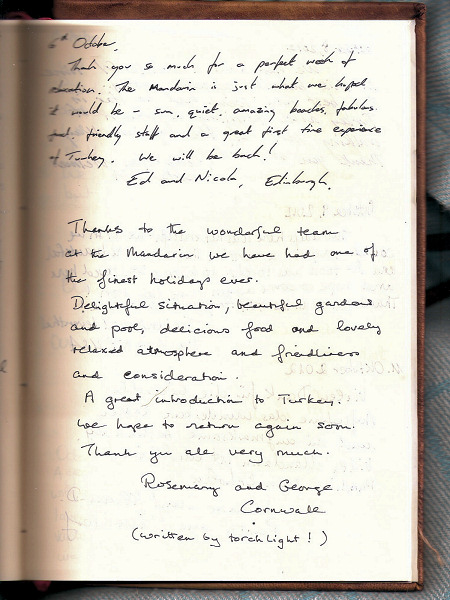 6th October.
Thank you so much for a perfect week of
The Mandarin is just what we hoped
it would be - sun, quiet, amazing beaches, fabulous
food, friendly staff and a great first time experience
of Turkey. We will be back!
Ed and Nicola, Edinburgh.
Thanks to the wonderful team
at the Mandarin we have had one of
the finest holidays ever.
Delightful situation, beautiful gardens
and pool, delicious food and lovely
relaxed atmosphere and friendliness
and consideration.
A great introduction to Turkey.
We hope to return again soon.
Thank you all very much.
Rosemary and George
Cornwall
(written by torchlight!)